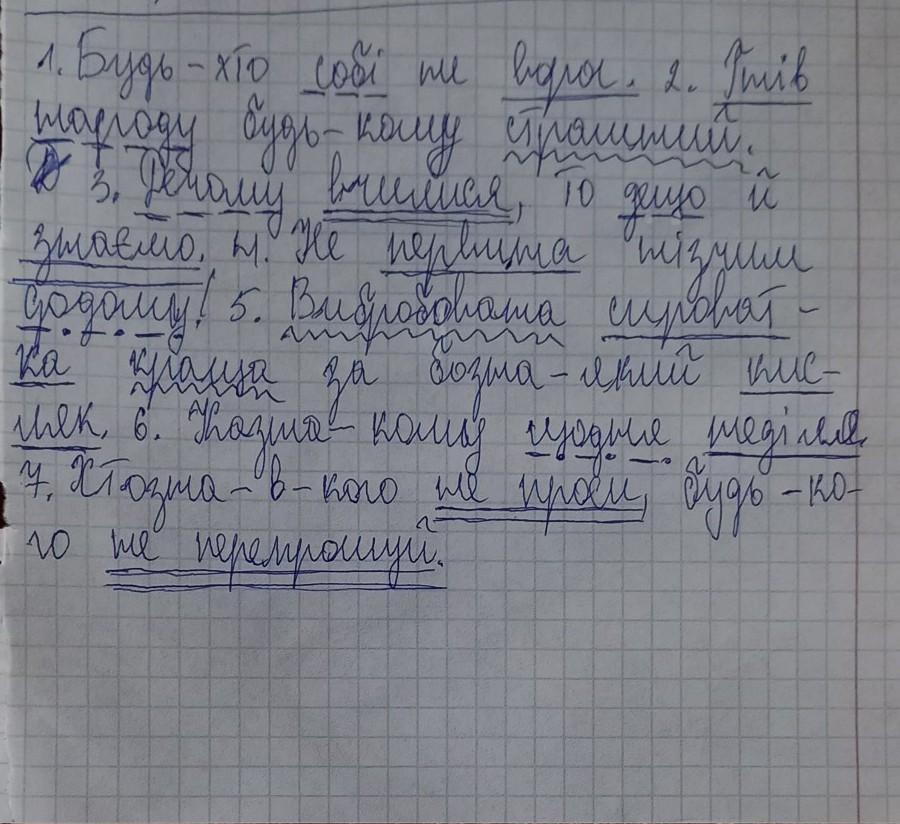 1. Будь-хто собі не ворог. 2. Гнів
народу будь-кому страшний.
3. Дечому вчилися, то дещо й
знаємо. 4. Не первина нізчим
додому! 5. Випробована сироват-
ка краща за бозна-який кис-
ляк. 6. Казна-кому щодня неділя.
7. Хтозна-в-кого не проси, будь-ко-
го не перепрошуй.